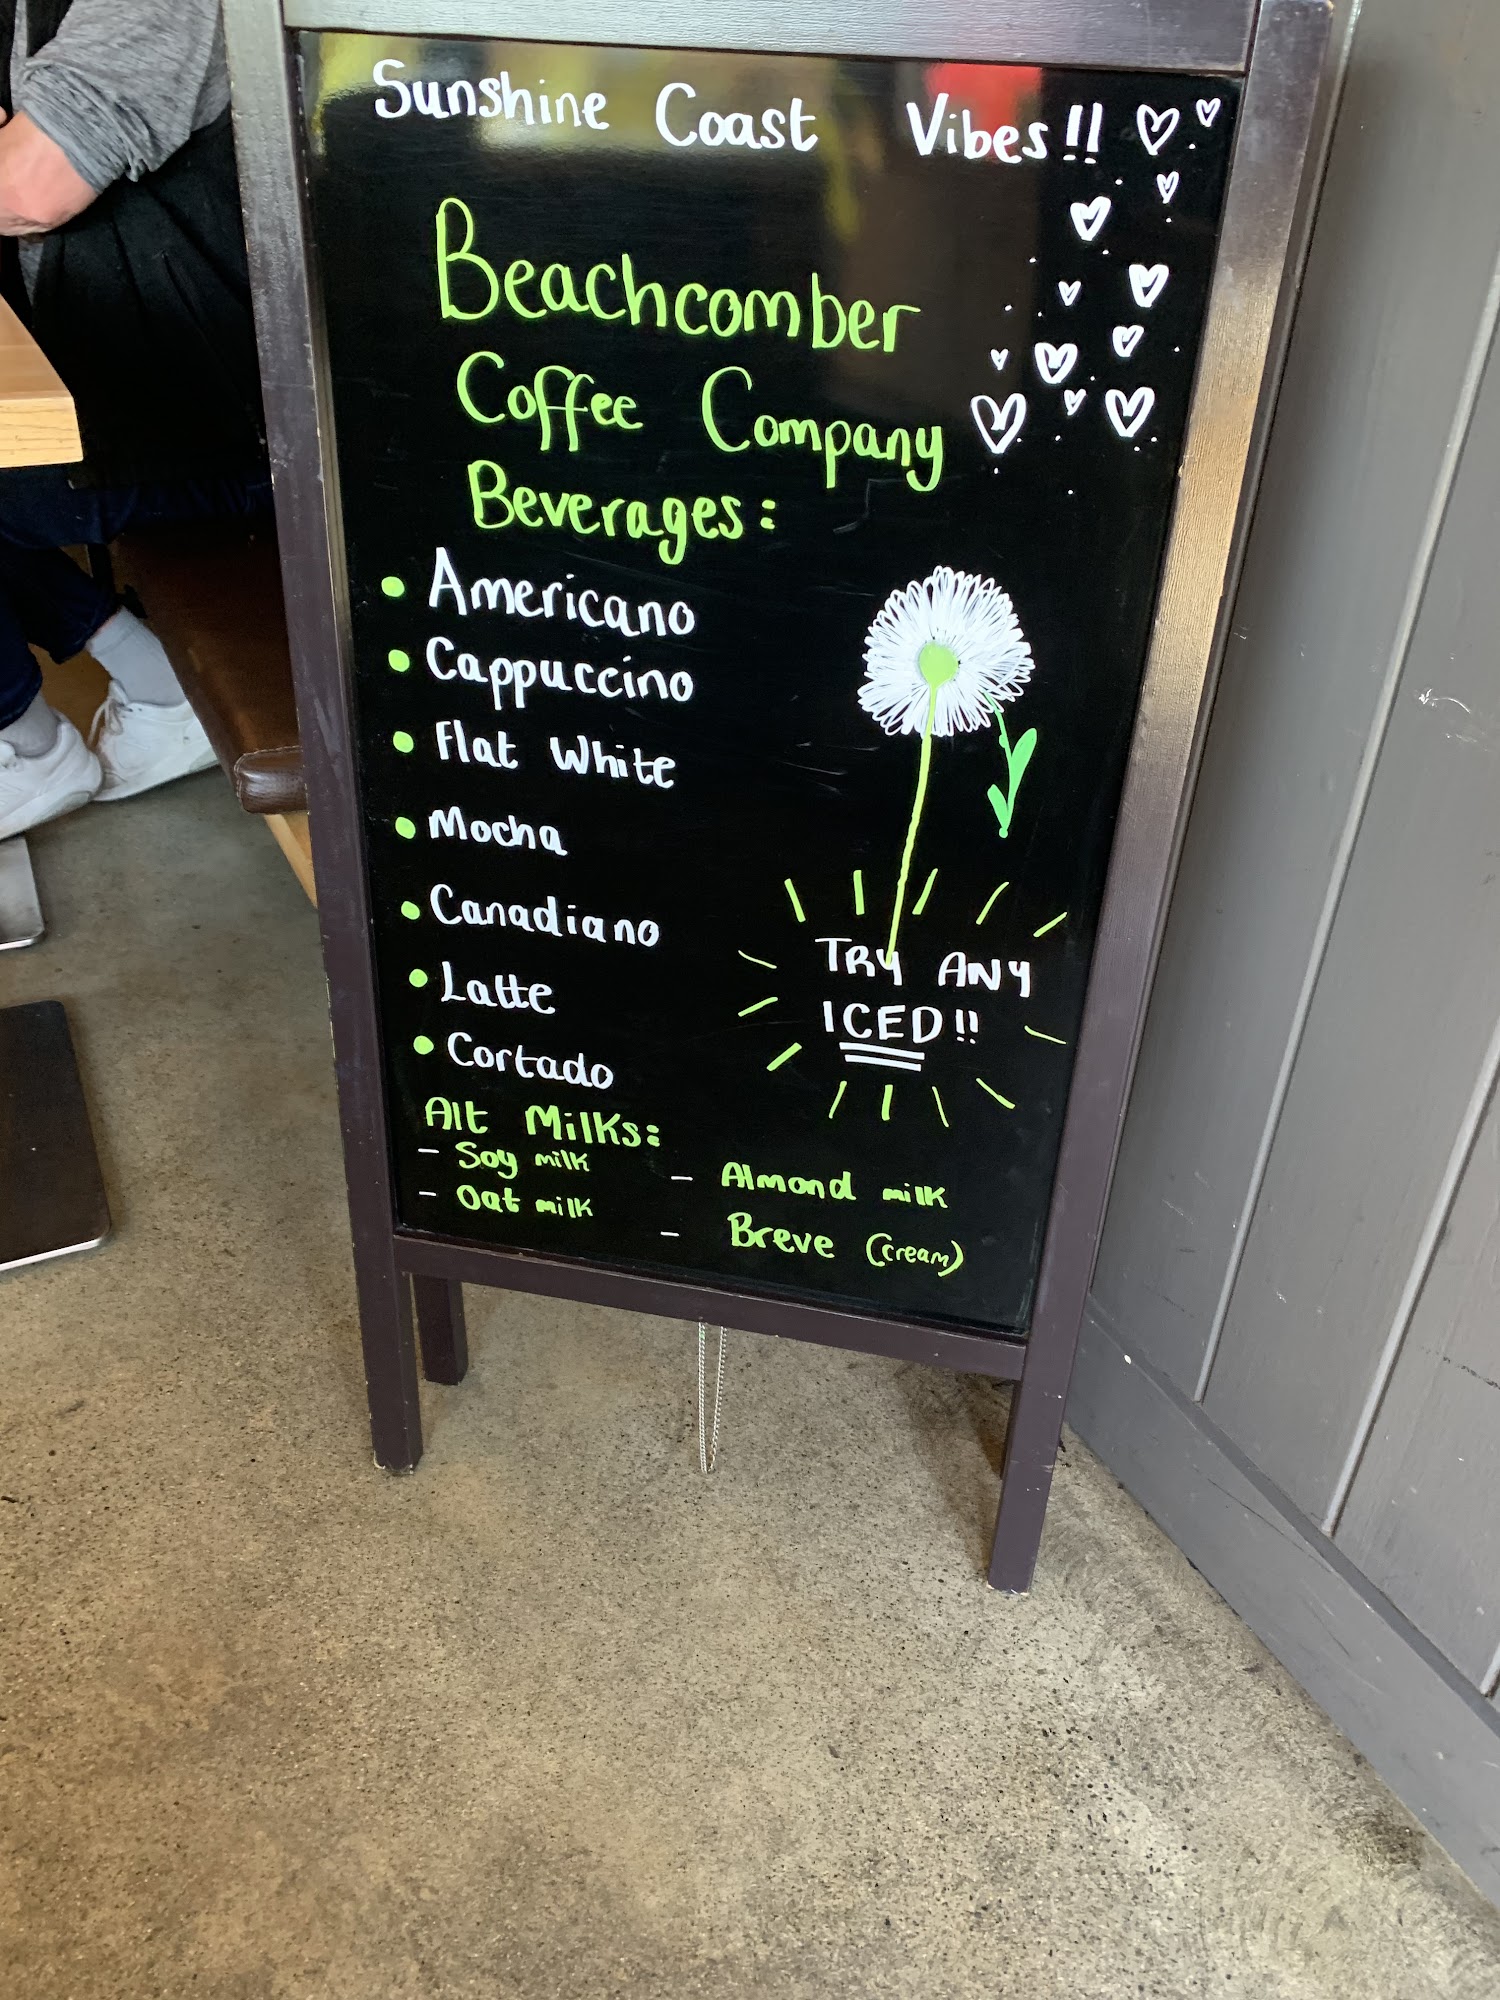 Sunshine Coast Vibes!!
Beachcomber
Coffee Company
Beverages:
• Americano
• Cappuccino
• Flat White
• Mocha
• Canadiano
• Latte
• Cortado
TRY ANY
ICED!!
Alt Milks:
- Soy milk
- Oat milk
- Almond milk
- Breve (cream)